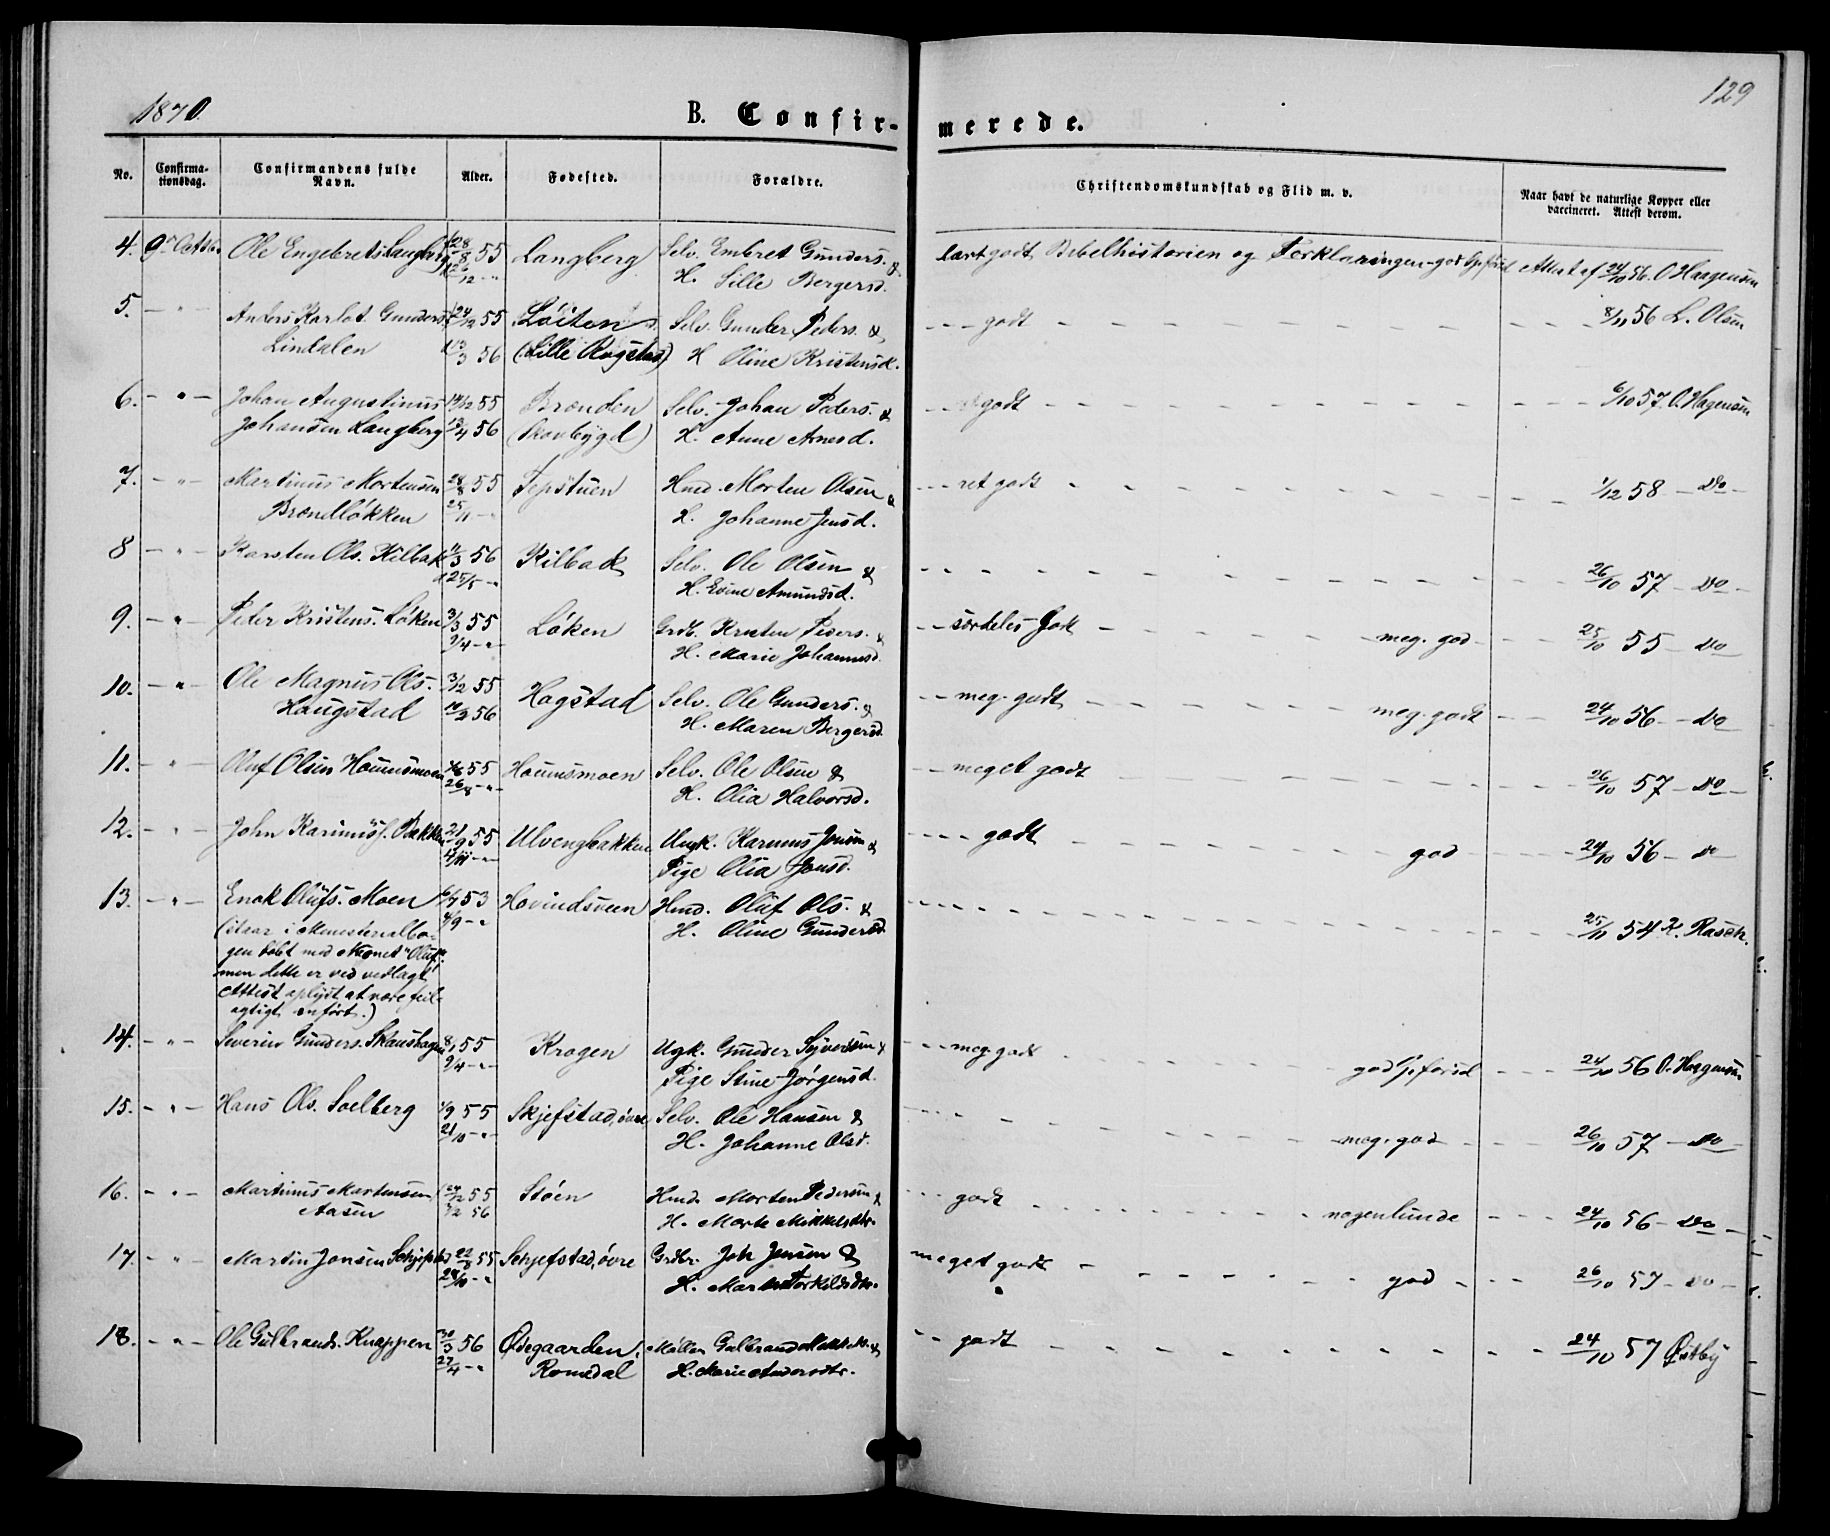 1870.
B. Confir-
merede.
129
No.
Confirma-
tionsdag.
Confirmandens fulde
Navn.
Alder.
Fødested.
Forældre.
Christendomskundskab og Flid m. v.
Naar havt de naturlige Kopper eller
vaccineret. Attest derom.
4. 9de Octbr. Ole Engebrets Langberg 28/8 55 Langberg Selv. Embret Gunders. & lært godt Bibelhistorien og Forklaringen - god Attest af 24/10 56. O Haagensen
/12 - " H. Sille Bergersd.
5. - " - Anders Karlot. Gunders. 24/12 55 Løiten Selv. Gunder Peders. & - - - godt - - - 8/11 56 L. Olsen
Lindalen 13/3 56 (Lille Rogstad) H Oline Kristensd.
6. - " - Johan Augustinus 14/12 55 Brænden Selv. Johan Peders. & - - godt - - - 6/10 57. O. Hagensen
Johansen Langberg 13/4 56 (Skovbygd) H. Anne Arnesd.
7. - " - Martinus Mortensen 28/8 55 Tepstuen Hmd. Morten Olsen & - - - ret godt - - - 1/12 58 - Do -
Brændløkken 25/11 - " H. Johanne Jensd.
8 - " - Karsten Ols. Kilbak 11/3 56 Kilbak Selv. Ole Olsen & - - - 26/10 57 - Do -
25/5 - " H. Eline Amundsd.
9. - " - Peder Kristens. Løken 3/3 55 Løken Grdb. Kristen Peders. & - - særdeles Godt - - - meg. god - - - 25/10 55 - Do
9/4 - " - H. Marie Johannesd.
10. - " - Ole Magnus Ols. 3/12 55 Hagstad Selv. Ole Gunders. & - - meg. godt - - - meg. godt - - 24/10 56 - Do
Haugstad 10/2 56 H. Maren Bergersd.
11. - " - Oluf Olsen Hommsmoen 55 Hommsmoen Selv. Ole Olsen & - - meget godt - - - 26/10 57 - Do -
26/8 - " - H. Olia Halvorsd.
12. - " - John Karinius s. Bakken 21/9 55 Ulvengbakken Ungk. Karinus Jensen & - - - - godt - - - god - - - 24/10 56 - Do
/11 - " - Pige Olia Jensd.
13. - " - Enok Olufs. Moen 6/7 53 Hovindsveen Hmd. Oluf Ols. & - - - - 25/11 54 K. Rasch.
4/9 - " (staar i Ministerialbo- H. Oline Gundersd.
gen døbt med Navnet "Oluf",
men dette er ved vedlagt
Attest oplyst at være feil-
agtigt anført.)
14. - " - Severin Gunders. Skaushagen 8/1 55 Krogen Ugk. Gunder Syversen & - - - meg. godt - - - god Opførsel - - - 24/10 56 O. Haagensen
9/4 - " - Pige Stine Jørgensd.
15. - " - Hans Ols. Solberg 1/9 55 Skjefstad, øvre Selv. Ole Hansen & - - - meg. god - - - 26/10 57 - Do -
21/10 - " - H. Johanne Olsd.
16. - " - Martinus Martensen 24/12 55 Støen Hmd. Morten Pedersen & - - - godt - - - nogenlunde - - - 24/10 56 - Do -
Aasen /2 56 H. Marte Mikkelsdtr.
17. - " - Martin Jonsen Schjefstad 22/8 55 Schjefstad, øvre Grdbr. Joh Jensen & meget godt - - - god - - - 26/10 57 - Do -
28/10 - " H. Marthe Torkelsdtr.
18. - " - Ole Gulbrands. Knappen 30/3 56 Ødegaarden, Møller Gulbrand & - - godt - - - 24/10 57 Østby
27/4 - " Romedal H. Marie Andersdtr.